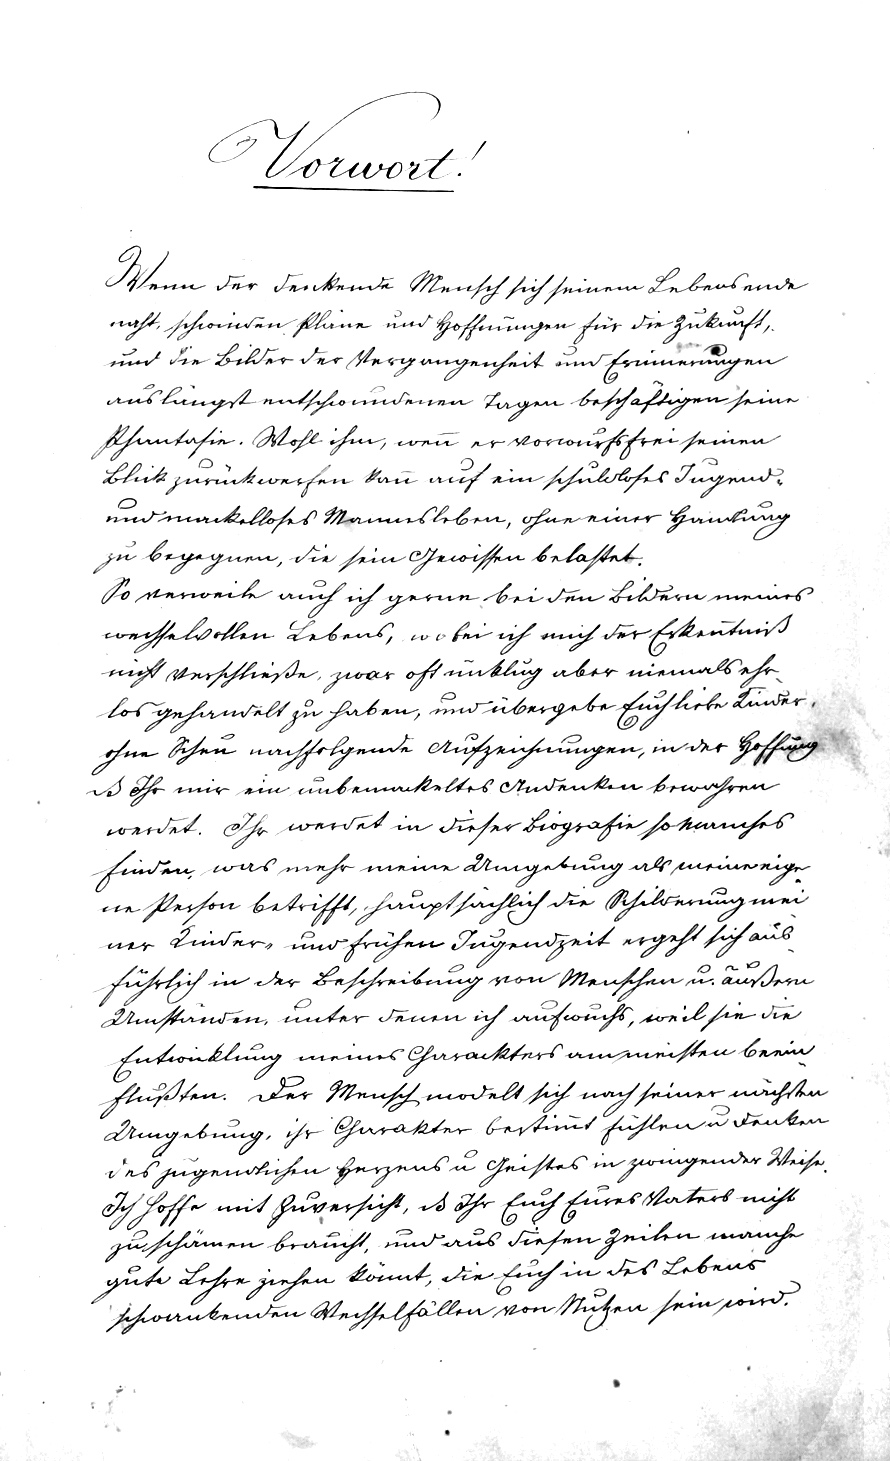 Vorwort!
Wenn der denkende Mensch sich seinem Lebensende
naht, schwinden Pläne und Hoffnungen für die Zukunft,
und die Bilder der Vergangenheit und Erinnerungen
aus längst entschwundenen Tagen beschäftigen seine
Phantasie. Wohl ihm, wen̄ er vorwurfsfrei seinen
Blick zurückwerfen kan̄ auf ein schuldloses Jugend-
und mackelloses Mannesleben, ohne einer Handlung
zu begegnen, die sein Gewissen belastet.
So verweile auch ich gerne bei den Bildern meines
wechselvollen Lebens, wobei ich mich der Erken̄tniß
nicht verschließe, zwar oft unklug aber niemals ehr-
los gehandelt zu haben, und übergebe Euch liebe Kinder,
ohne Scheu nachfolgende Aufzeichnungen, in der Hoffnung
Ihr mir ein unbemackeltes Andenken bewahren
werdet. Ihr werdet in dieser Biografie so Manches
finden, was mehr meine Umgebung als meine eige-
ne Person betrifft, hauptsächlich die Schilderung mei
ner Kinder- und frühen Jugendzeit ergeht sich aus-
führlich in der Beschreibung von Menschen u. äußern
Umständen, unter denen ich aufwuchs, weil sie die
Entwicklung meines Charackters am meisten beein-
flußten. Der Mensch modelt sich nach seiner nächsten
Umgebung, ihr Charakter bestim̄t Fühlen u Denken
des jugendlichen Herzens u Geistes in zwingender Weise.
Ich hoffe mit Zuversicht, Ihr Euch Eures Vaters nicht
zu schämen braucht, und aus diesen Zeilen manche
gute Lehre ziehen könnt, die Euch in des Lebens
schwankenden Wechselfällen von Nutzen sein wird.